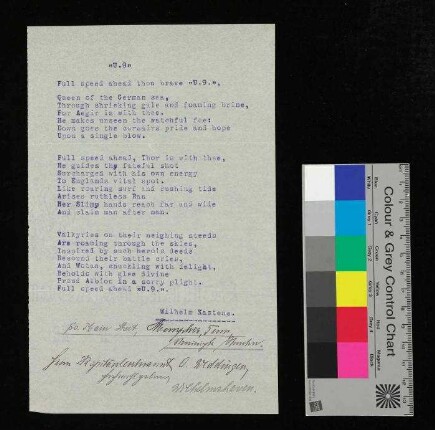 «U.9»
Full speed ahead thou brave «U.9.»,
Queen of the German sea,
Through shrieking gale and foaming brine,
For Aegir is with thee.
He makes unseen the watchful foe:
Down goes the pride and hope
Upon a single blow.
Full speed ahead, Thor is with thee,
He guides the fateful shot
Surcharged with his own energy
To Englands vital spot.
Like roaring surf and rushing tide
Arises ruthless Ran
Her Slimy hands reach far and wide
And claim man after man.
Valkyries on their neighing steeds
Are roaming through the skies,
Inspired by such heroic deeds
Resound their battle cries,
And Wotan, chuckling with delight,
Beholds with glee divine
Proud Albion in a sorry plight.
Full speed ahead «U.9.».
Wilhelm
O. Weddingen,
Wilhelmshaven.
Colour & Grey Control Chart
Blue
Cyan
Green
Yellow
Red
Magenta
White
Grey 1
Grey 2
Grey 3
Grey 4
Black